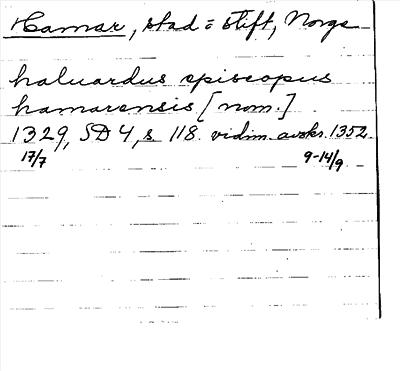 Hamar, stad o stift, Norge
haluardus episcopus
hamarensis [nom.]
1329, SD 4, s. 118. vidim. avskr. 1352.
17/7 9-14/9.